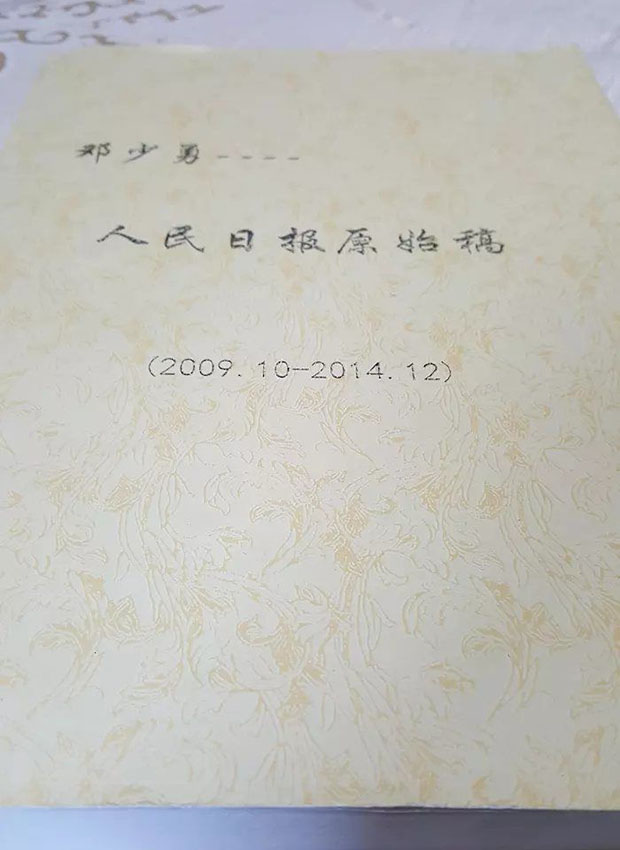 邓少勇----
人民日报原始稿
(2009.10-2014.12)